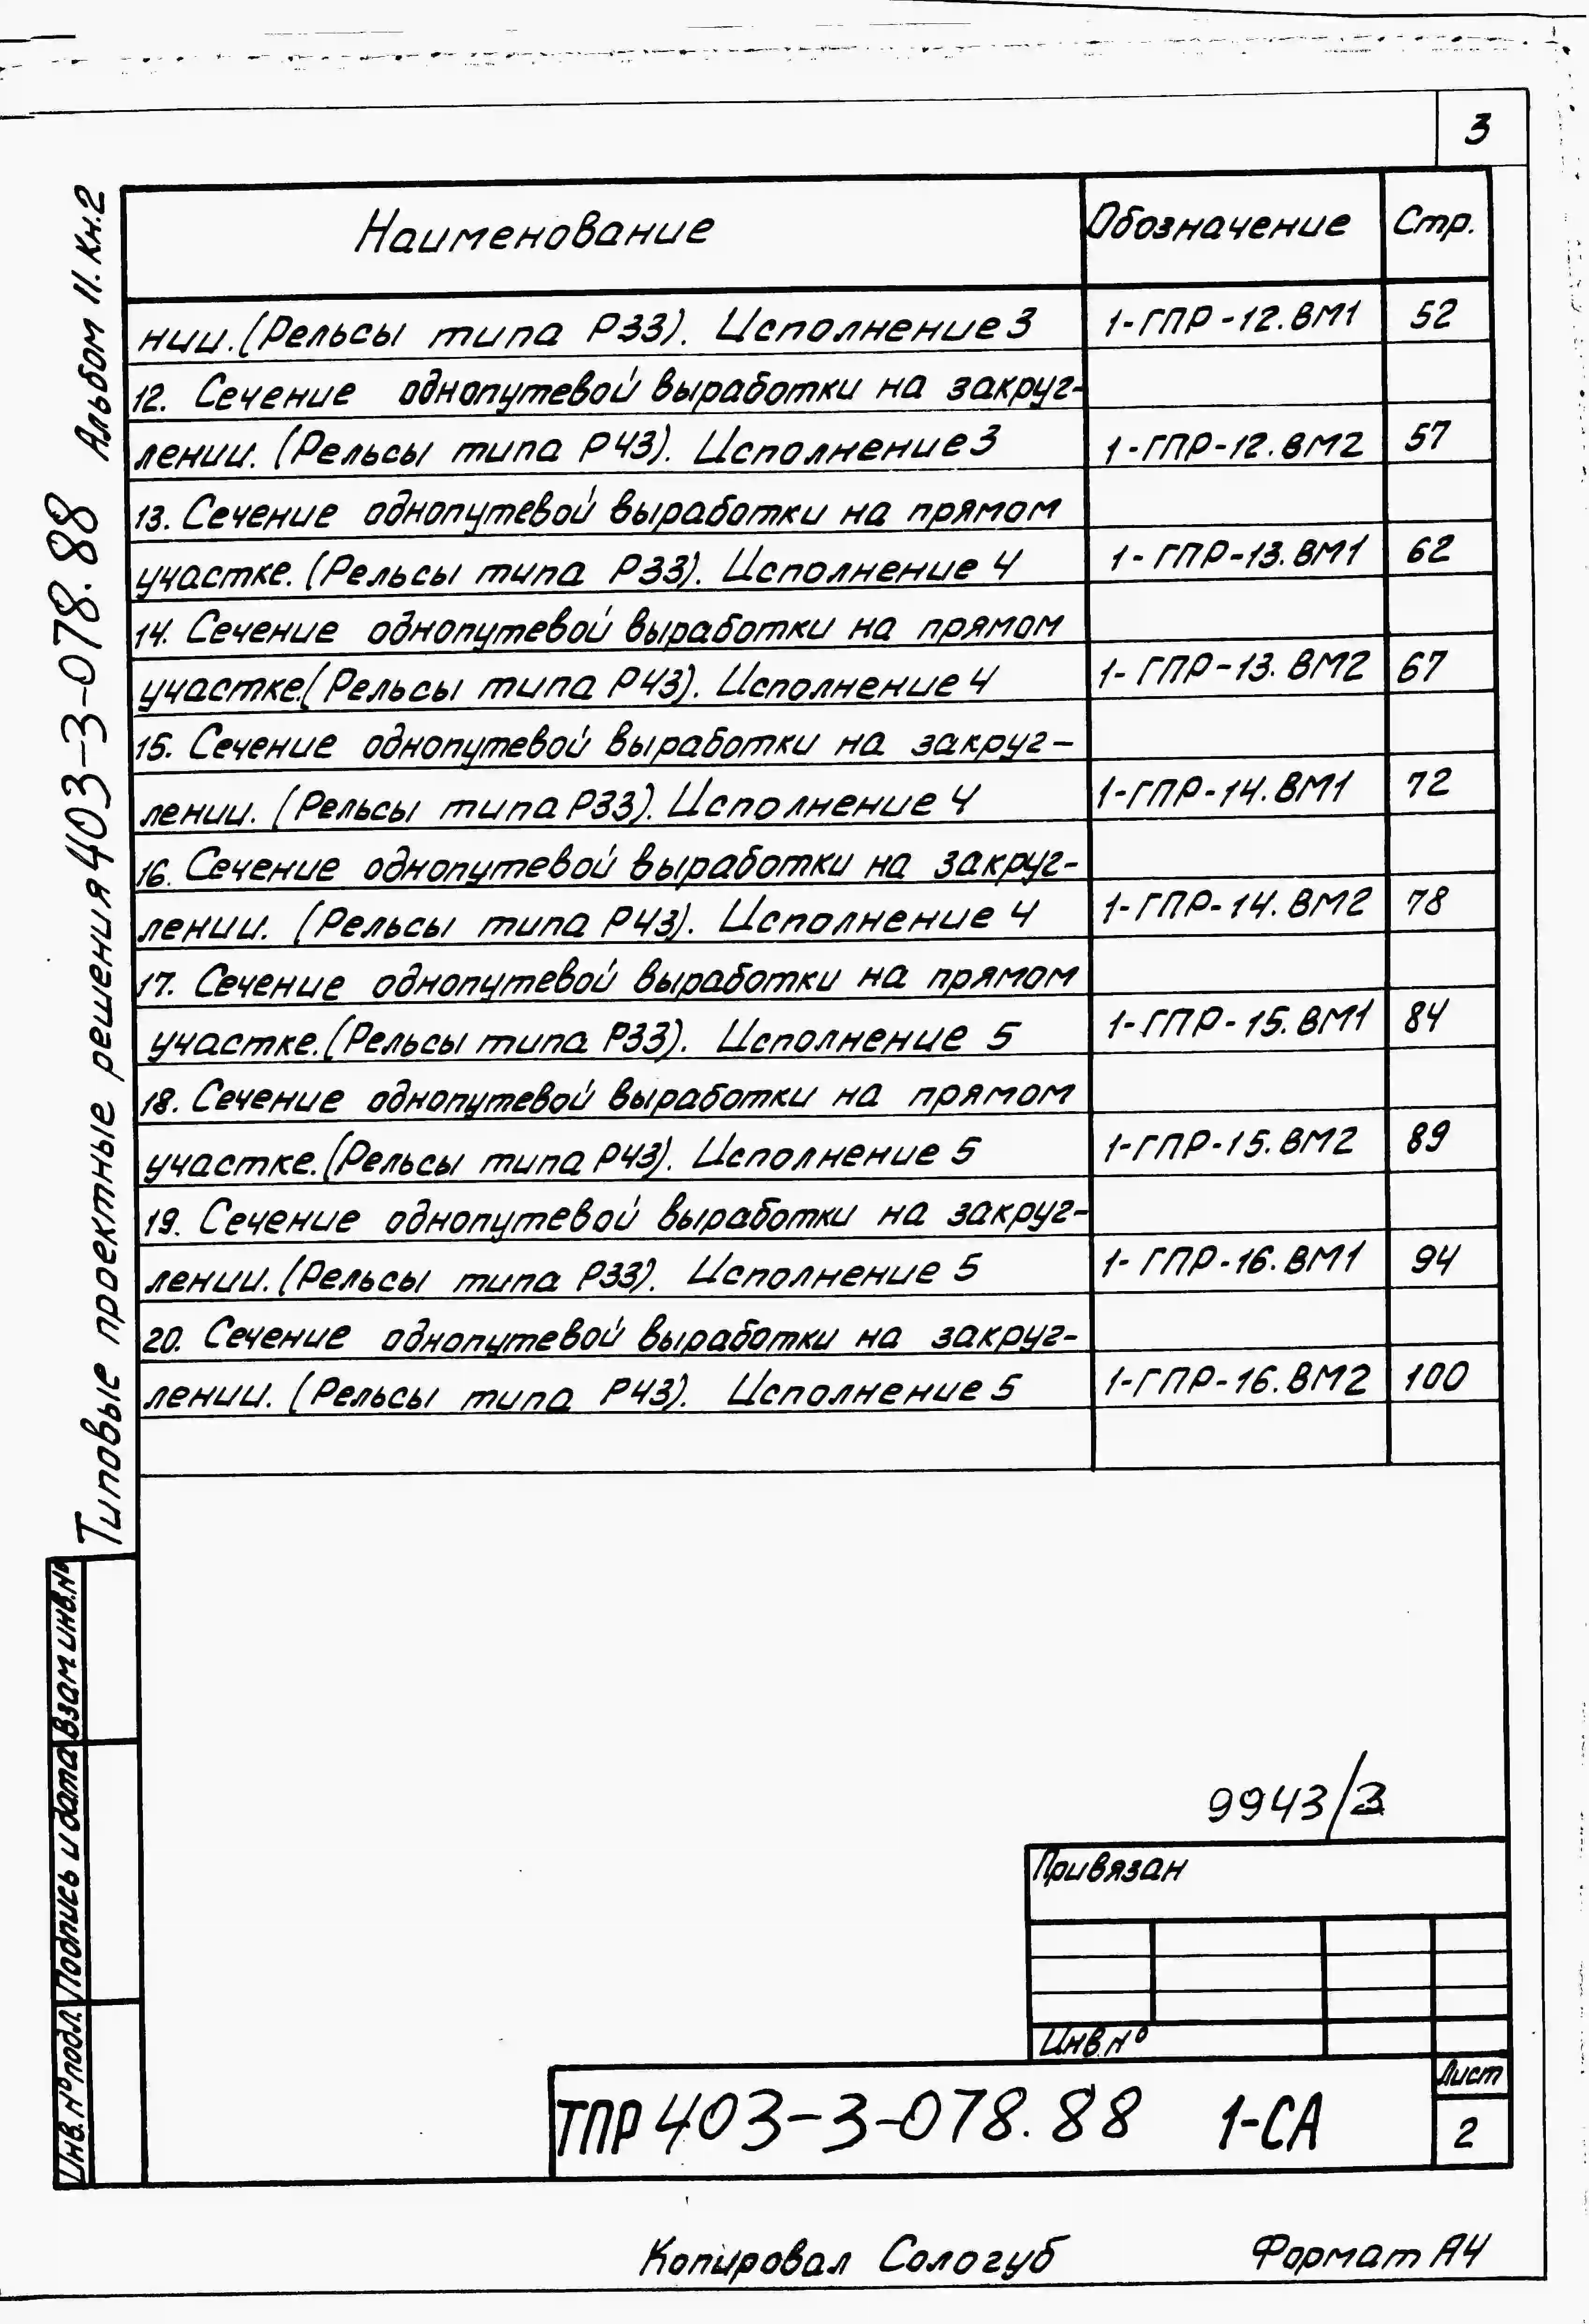 3
Альбом II. Кн.2
Типовые проектные решения 403-3-078.88
Наименование Обозначение Стр.
нии. (Рельсы типа Р33). Исполнение 3 1-ГПР-12.ВМ1 52
12. Сечение однопутевой выработки на закруг-
лении. (Рельсы типа Р43). Исполнение 3 1-ГПР-12.ВМ2 57
13. Сечение однопутевой выработки на прямом
участке. (Рельсы типа Р33). Исполнение 4 1-ГПР-13.ВМ1 62
14. Сечение однопутевой выработки на прямом
участке. (Рельсы типа Р43). Исполнение 4 1-ГПР-13.ВМ2 67
15. Сечение однопутевой выработки на закруг-
лении. (Рельсы типа Р33). Исполнение 4 1-ГПР-14.ВМ1 72
16. Сечение однопутевой выработки на закруг-
лении. (Рельсы типа Р43). Исполнение 4 1-ГПР-14.ВМ2 78
17. Сечение однопутевой выработки на прямом
участке. (Рельсы типа Р33). Исполнение 5 1-ГПР-15.ВМ1 84
18. Сечение однопутевой выработки на прямом
участке. (Рельсы типа Р43). Исполнение 5 1-ГПР-15.ВМ2 89
19. Сечение однопутевой выработки на закруг-
лении. (Рельсы типа Р33). Исполнение 5 1-ГПР-16.ВМ1 94
20. Сечение однопутевой выработки на закруг-
лении. (Рельсы типа Р43). Исполнение 5 1-ГПР-16.ВМ2 100
Взам.инв.№
Подпись и дата
Инв.№подл.
9943/3
Привязан
Инв.№
ТПР 403-3-078.88 1-СА
Лист
2
Копировал Сологуб Формат А4